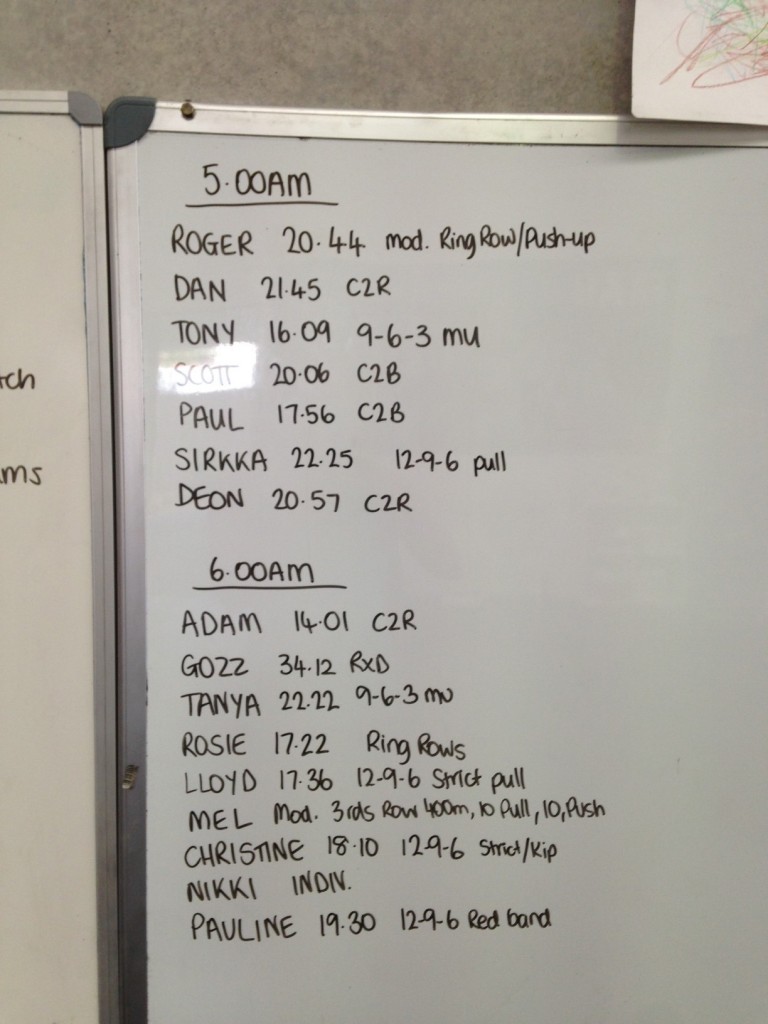 5.00AM
ROGER 20.44 mod. Ring Row/Push-up
DAN 21.45 C2R
TONY 16.09 9-6-3 mu
SCOTT 20.06 C2B
PAUL 17.56 C2B
SIRKKA 22.25 12-9-6 pull
DEON 20.57 C2R
6.00AM
ADAM 14.01 C2R
GOZZ 34.12 RXD
TANYA 22.22 9-6-3 mu
ROSIE 17.22 Ring Rows
LLOYD 17.36 12-9-6 Strict pull
MEL Mod. 3rds Row 400m, 10 Pull, 10, Push
CHRISTINE 18.10 12-9-6 Strict/Kip
NIKKI INDIV.
PAULINE 19.30 12-9-6 Red band